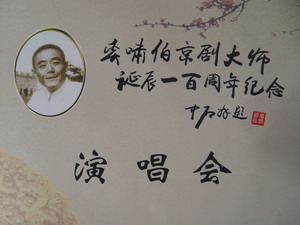 奚啸伯京剧大师
诞辰一百周年纪念
演唱会